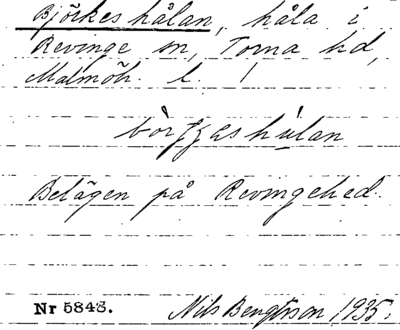 Björkeshålan, håla i
Revinge sn, Torna hd,
Malmöh. l. !
Belägen på Revingehed.
Nr 5848. Nils Bengtsson 1935.